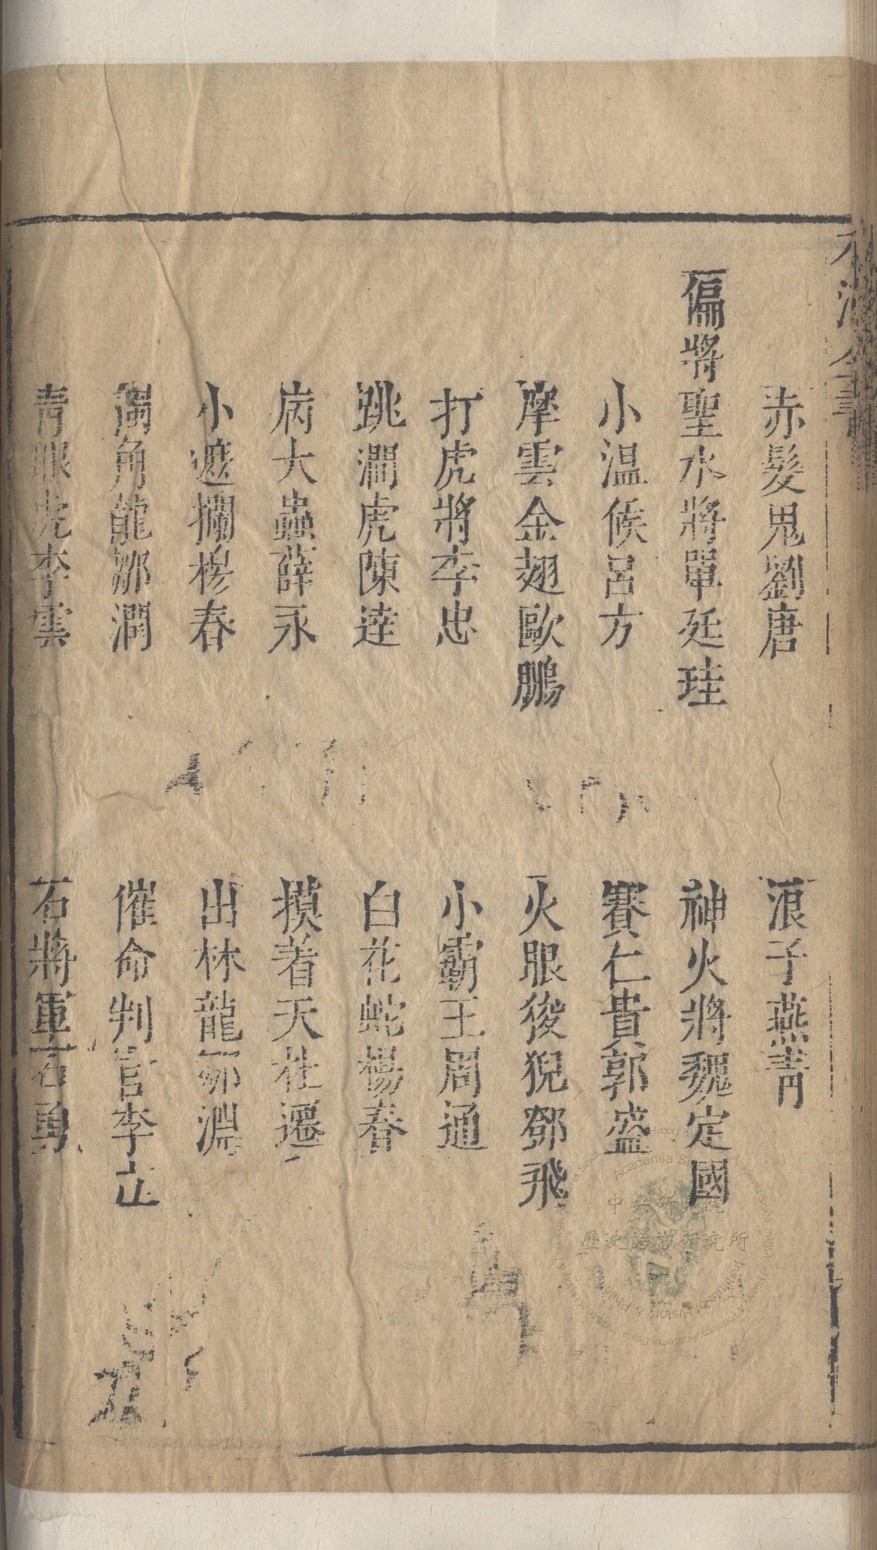 赤髮鬼劉唐　浪子燕青
偏將聖水將單廷珪　神火將魏定國
小温候呂方　賽仁貴郭盛
摩雲金翅歐鵬　火眼狻猊鄧飛
打虎將李忠　小霸王周通
跳澗虎陳達　白花蛇楊春
病大蟲薛永　摸着天杜遷
小遮攔楊春　出林龍鄒淵
獨角龍鄒潤　催命判官李立
青眼虎李雲　石將軍石勇